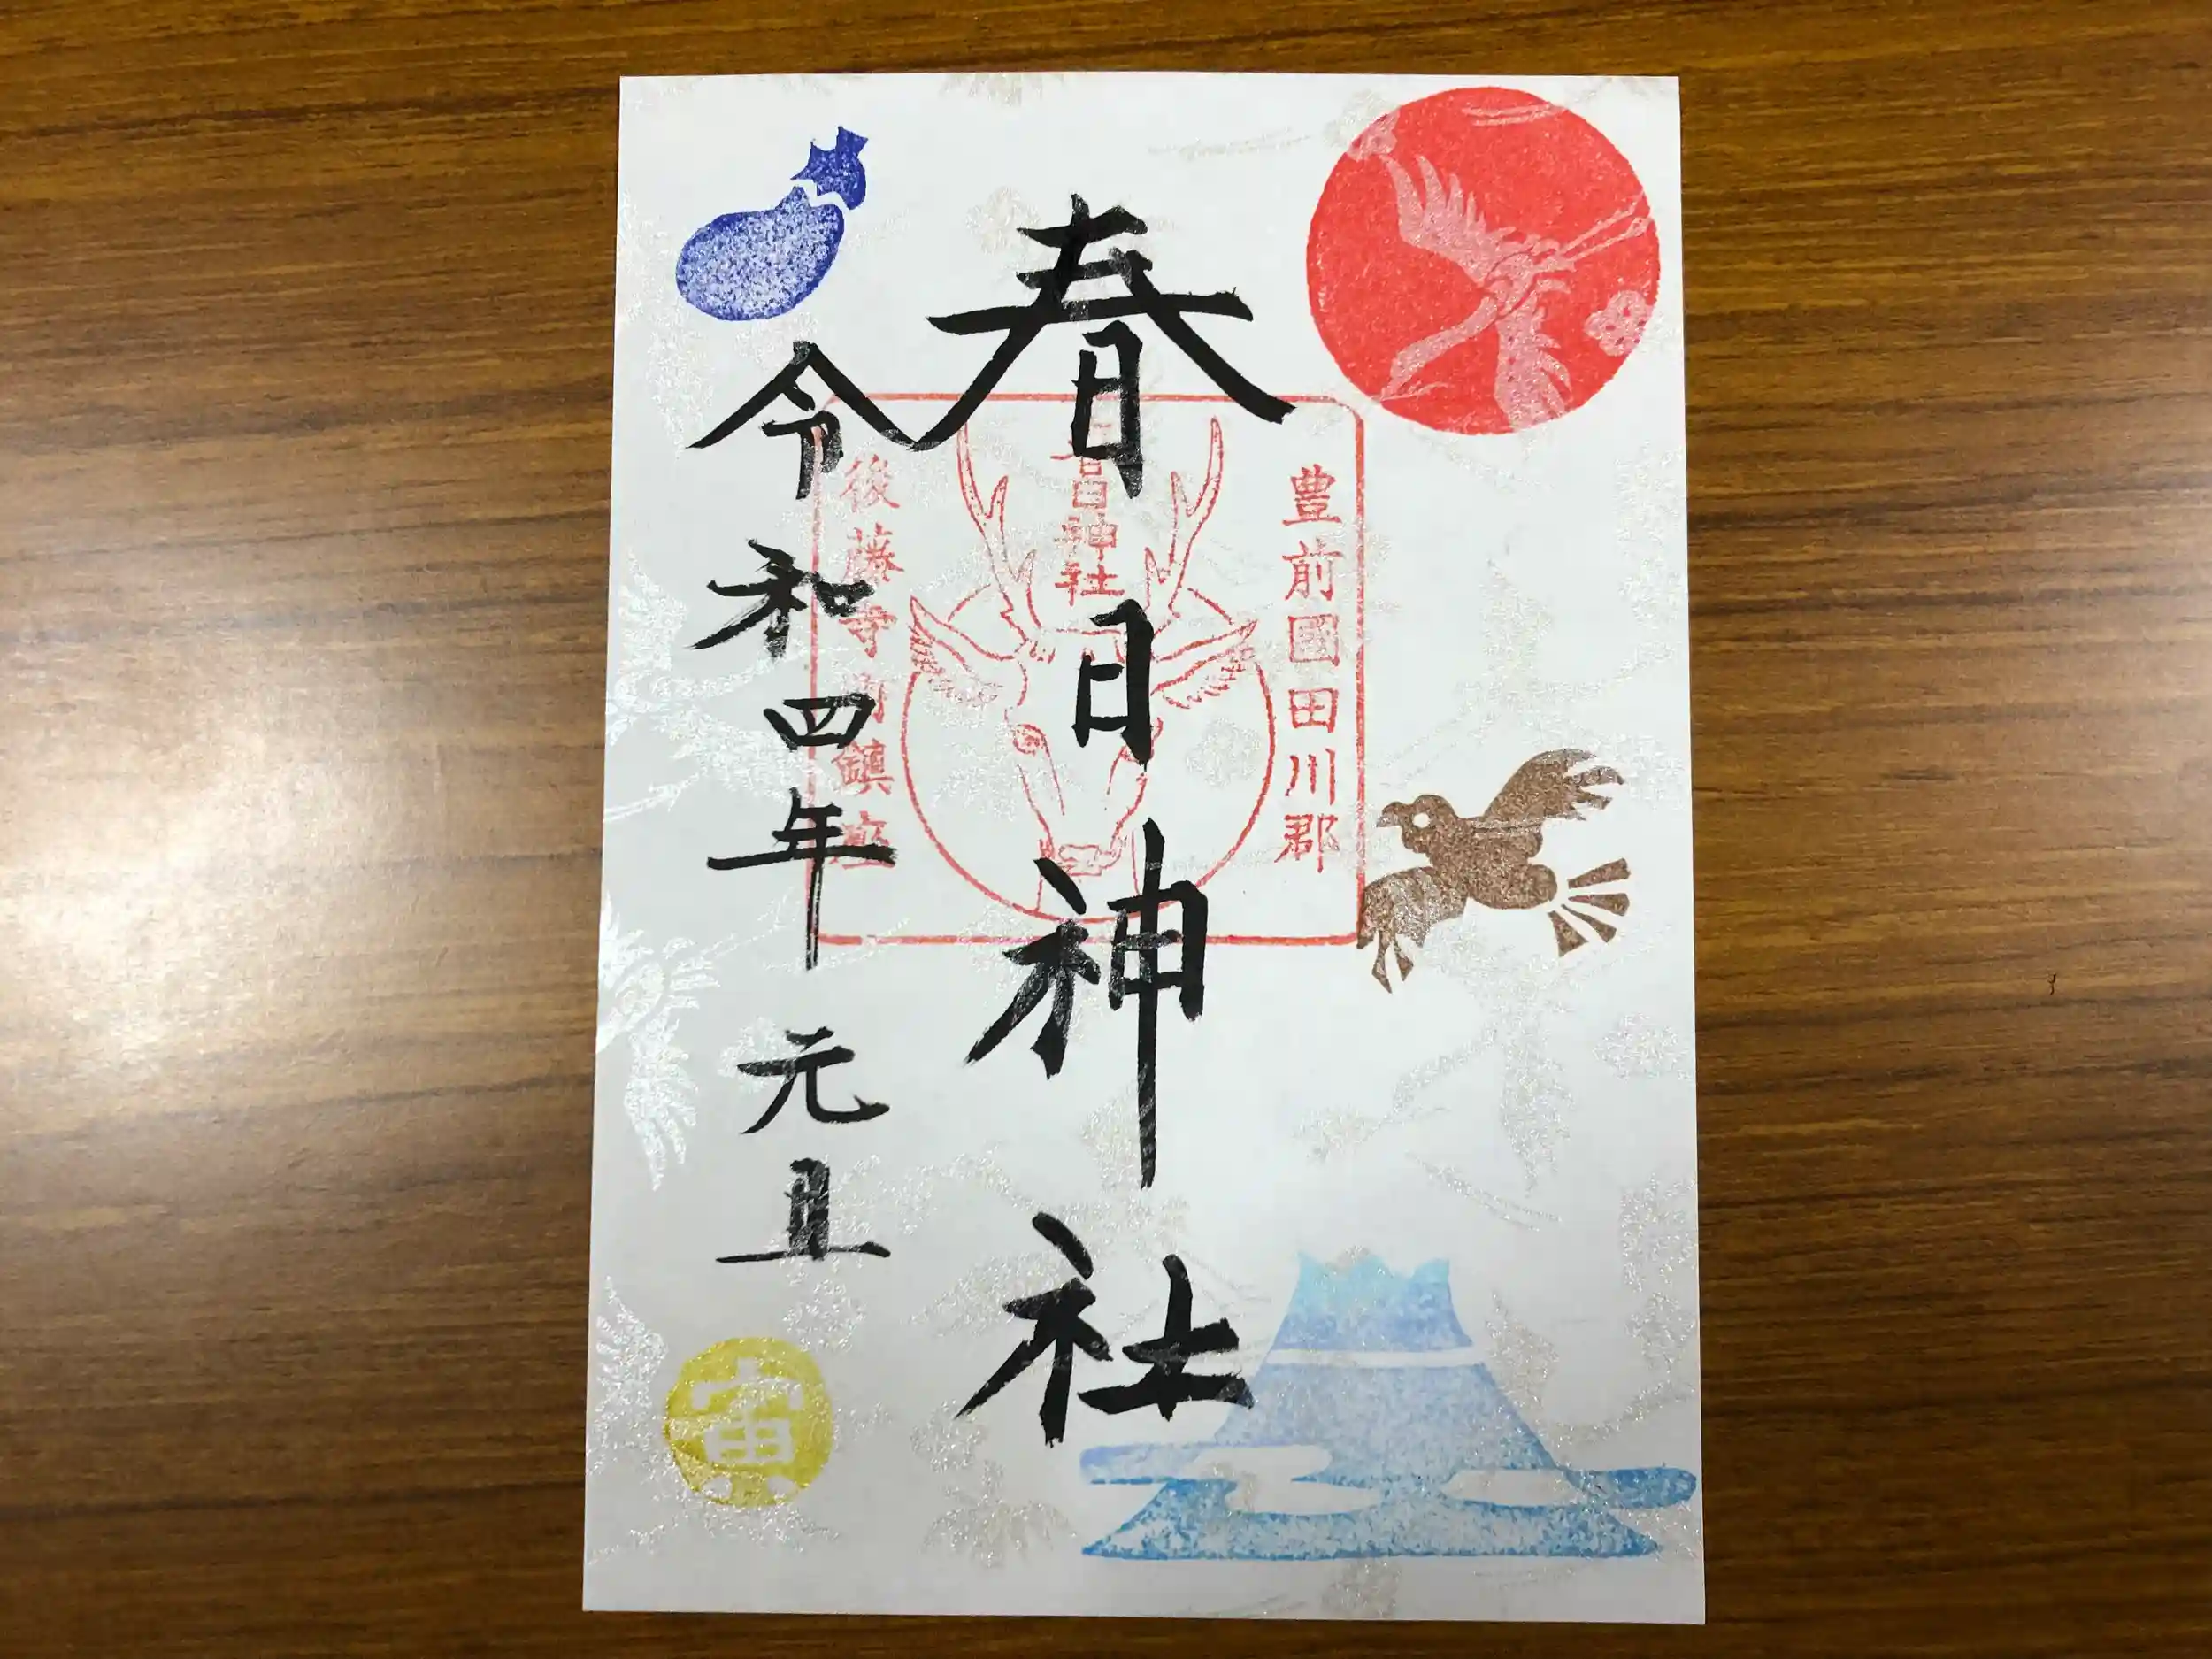 春日神社
令和四年 元旦
豊前國田川郡
春日神社
後藤寺 鎮座
寅